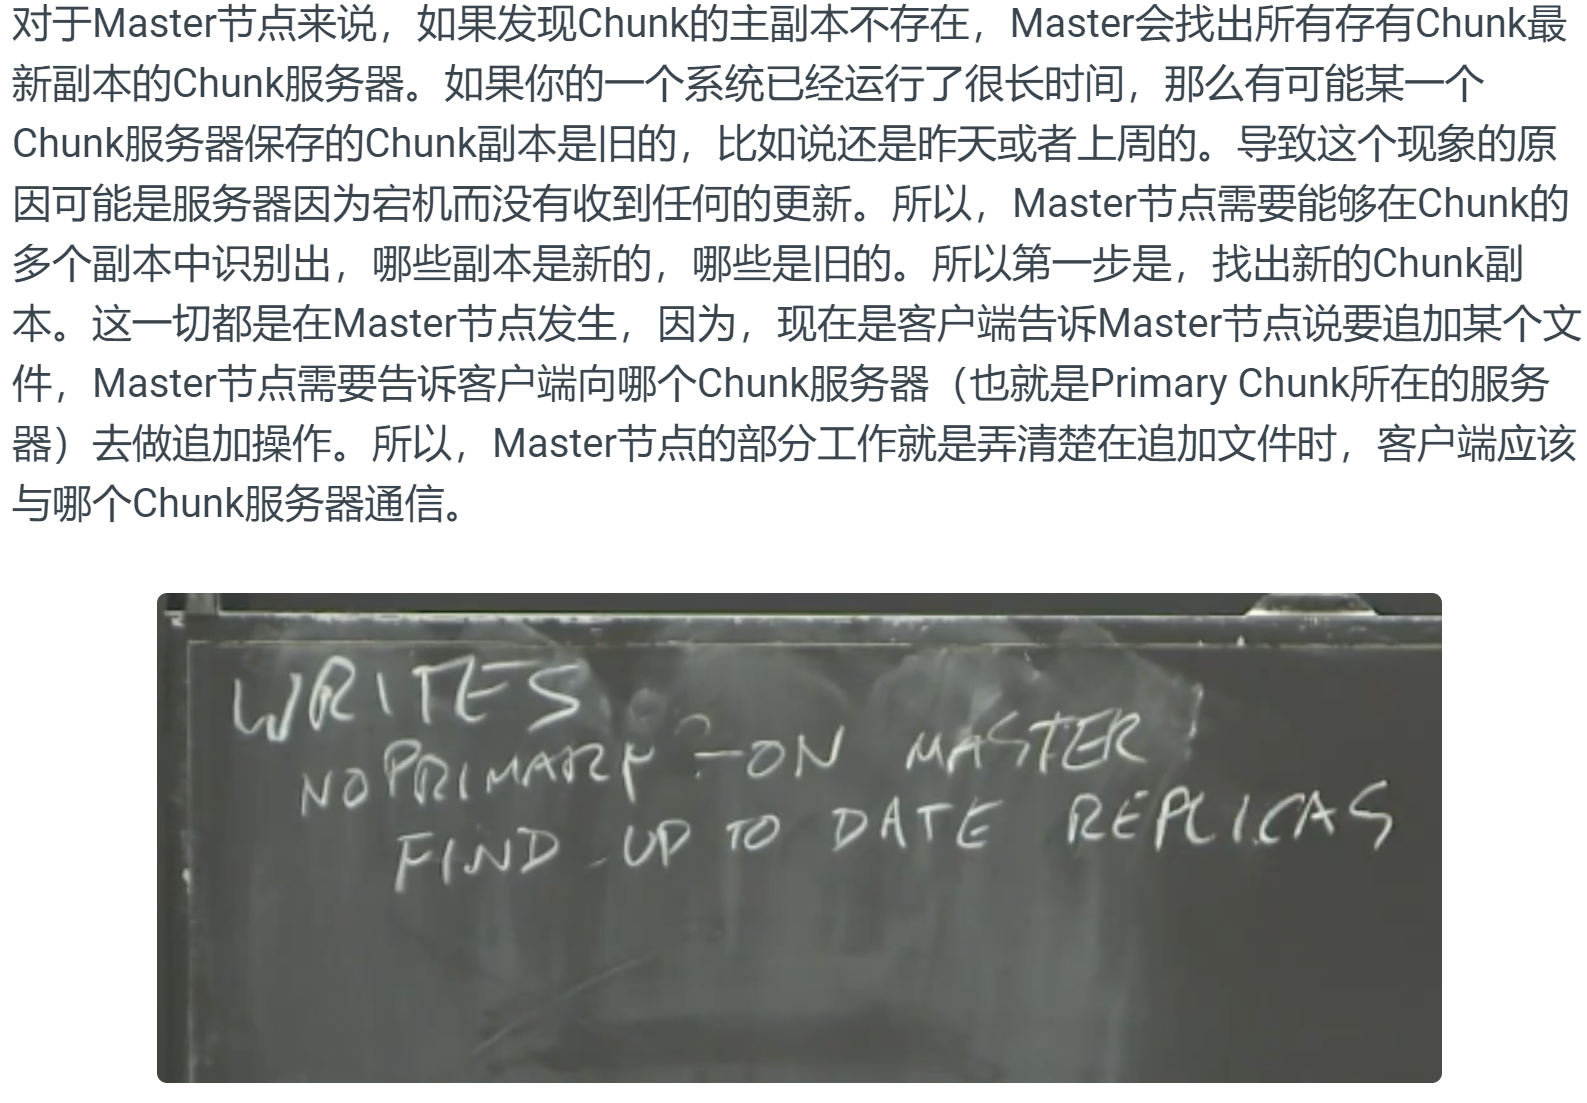 对于Master节点来说，如果发现Chunk的主副本不存在，Master会找出所有存有Chunk最
新副本的Chunk服务器。如果你的一个系统已经运行了很长时间，那么有可能某一个
Chunk服务器保存的Chunk副本是旧的，比如说还是昨天或者上周的。导致这个现象的原
因可能是服务器因为宕机而没有收到任何的更新。所以，Master节点需要能够在Chunk的
多个副本中识别出，哪些副本是新的，哪些是旧的。所以第一步是，找出新的Chunk副
本。这一切都是在Master节点发生，因为，现在是客户端告诉Master节点说要追加某个文
件，Master节点需要告诉客户端向哪个Chunk服务器（也就是Primary Chunk所在的服务
器）去做追加操作。所以，Master节点的部分工作就是弄清楚在追加文件时，客户端应该
与哪个Chunk服务器通信。
WRITES
NO PRIMARY? - ON MASTER
FIND UP TO DATE REPLICAS